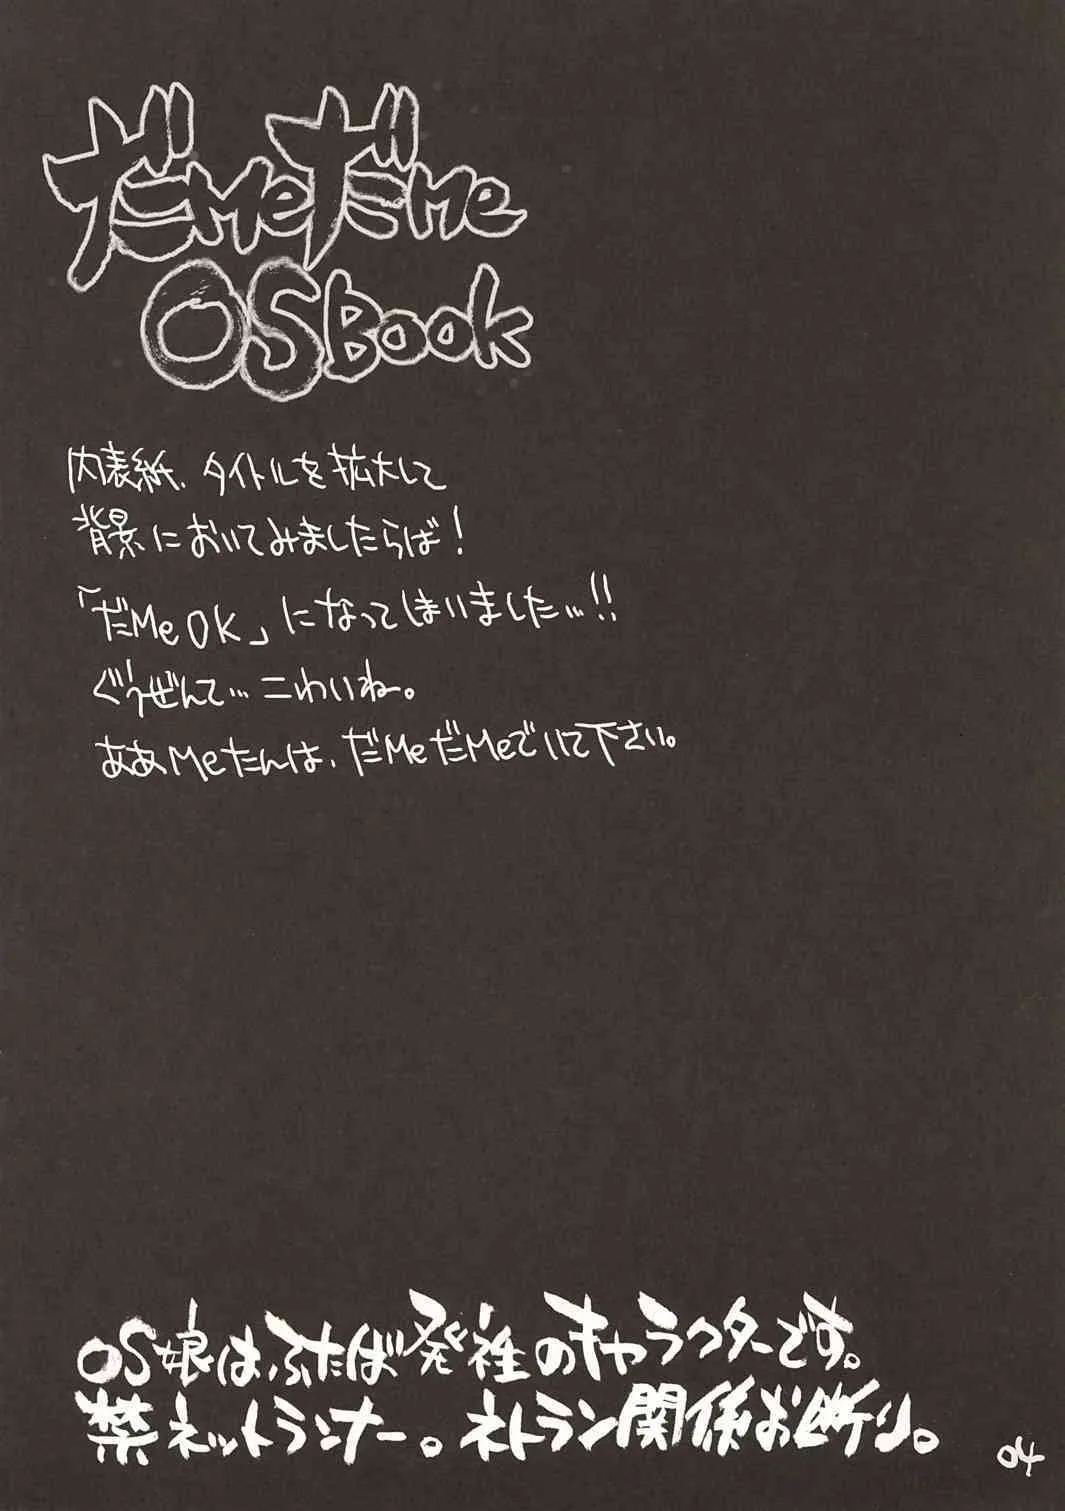 だMeだMe
OSBook
内表紙、タイトルを拡大して
背景においてみましたらば！
「だMeOK」になってしまいました…!!
ぐうぜんて…こわいね。
ああMeたんは、だMeだMeでいて下さい。
OS娘は、ふたば発祥のキャラクターです。
禁ネットランナー。ネトラン関係お断り。
04